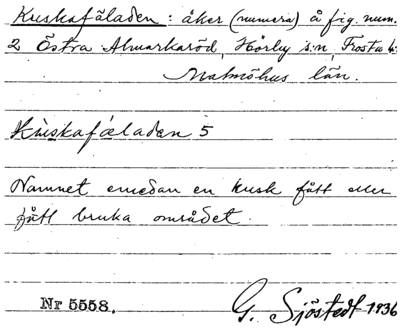 Kuskafäladen: åker (numera) å fig. num.
2 Östra Almarkaröd, Hörby s:n, Frosta h:
Malmöhus län.
Kuskafäladen 5
Namnet emedan en kusk fått eller
fått bruka området.
Nr 5558. G. Sjöstedt 1936